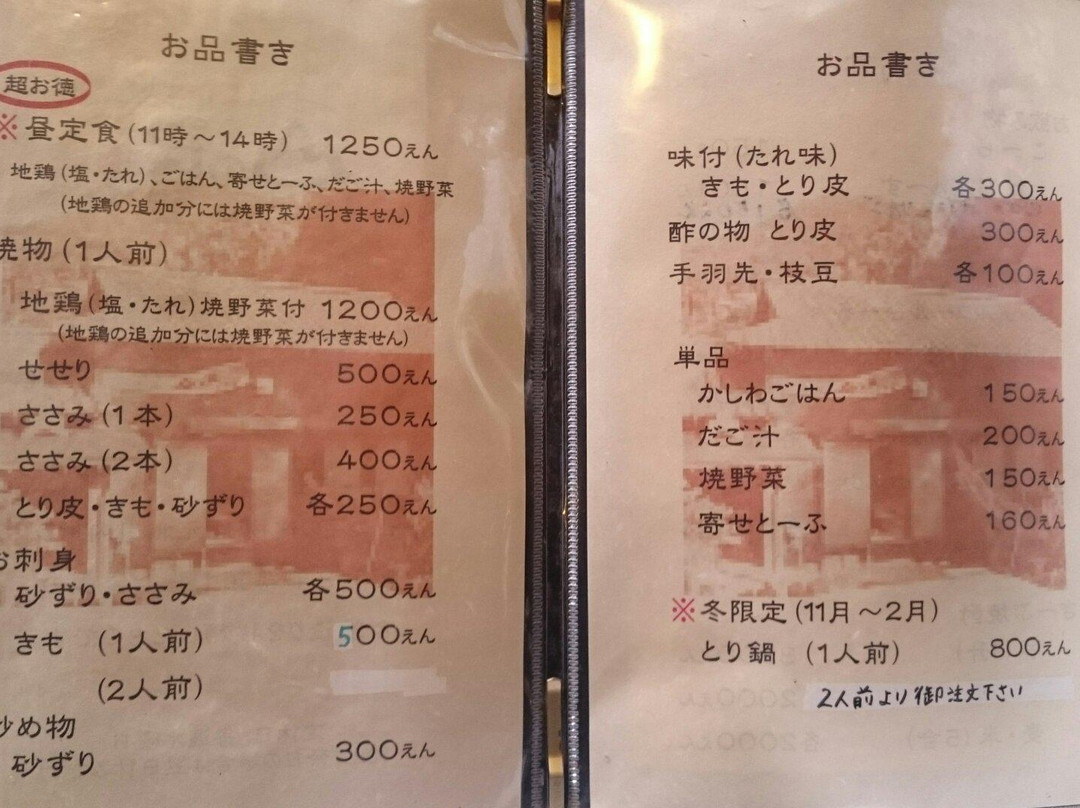 お品書き
超お徳
※昼定食(11時～14時) 1250えん
地鶏(塩・たれ)、ごはん、寄せとーふ、だご汁、焼野菜
(地鶏の追加分には焼野菜が付きません)
焼物(1人前)
地鶏(塩・たれ)焼野菜付 1200えん
(地鶏の追加分には焼野菜が付きません)
せせり 500えん
ささみ(1本) 250えん
ささみ(2本) 400えん
とり皮・きも・砂ずり 各250えん
お刺身
砂ずり・ささみ 各500えん
きも (1人前) 500えん
(2人前)
炒め物
砂ずり 300えん
お品書き
味付(たれ味)
きも・とり皮 各300えん
酢の物 とり皮 300えん
手羽先・枝豆 各100えん
単品
かしわごはん 150えん
だご汁 200えん
焼野菜 150えん
寄せとーふ 160えん
※冬限定(11月～2月)
とり鍋 (1人前) 800えん
2人前より御注文下さい